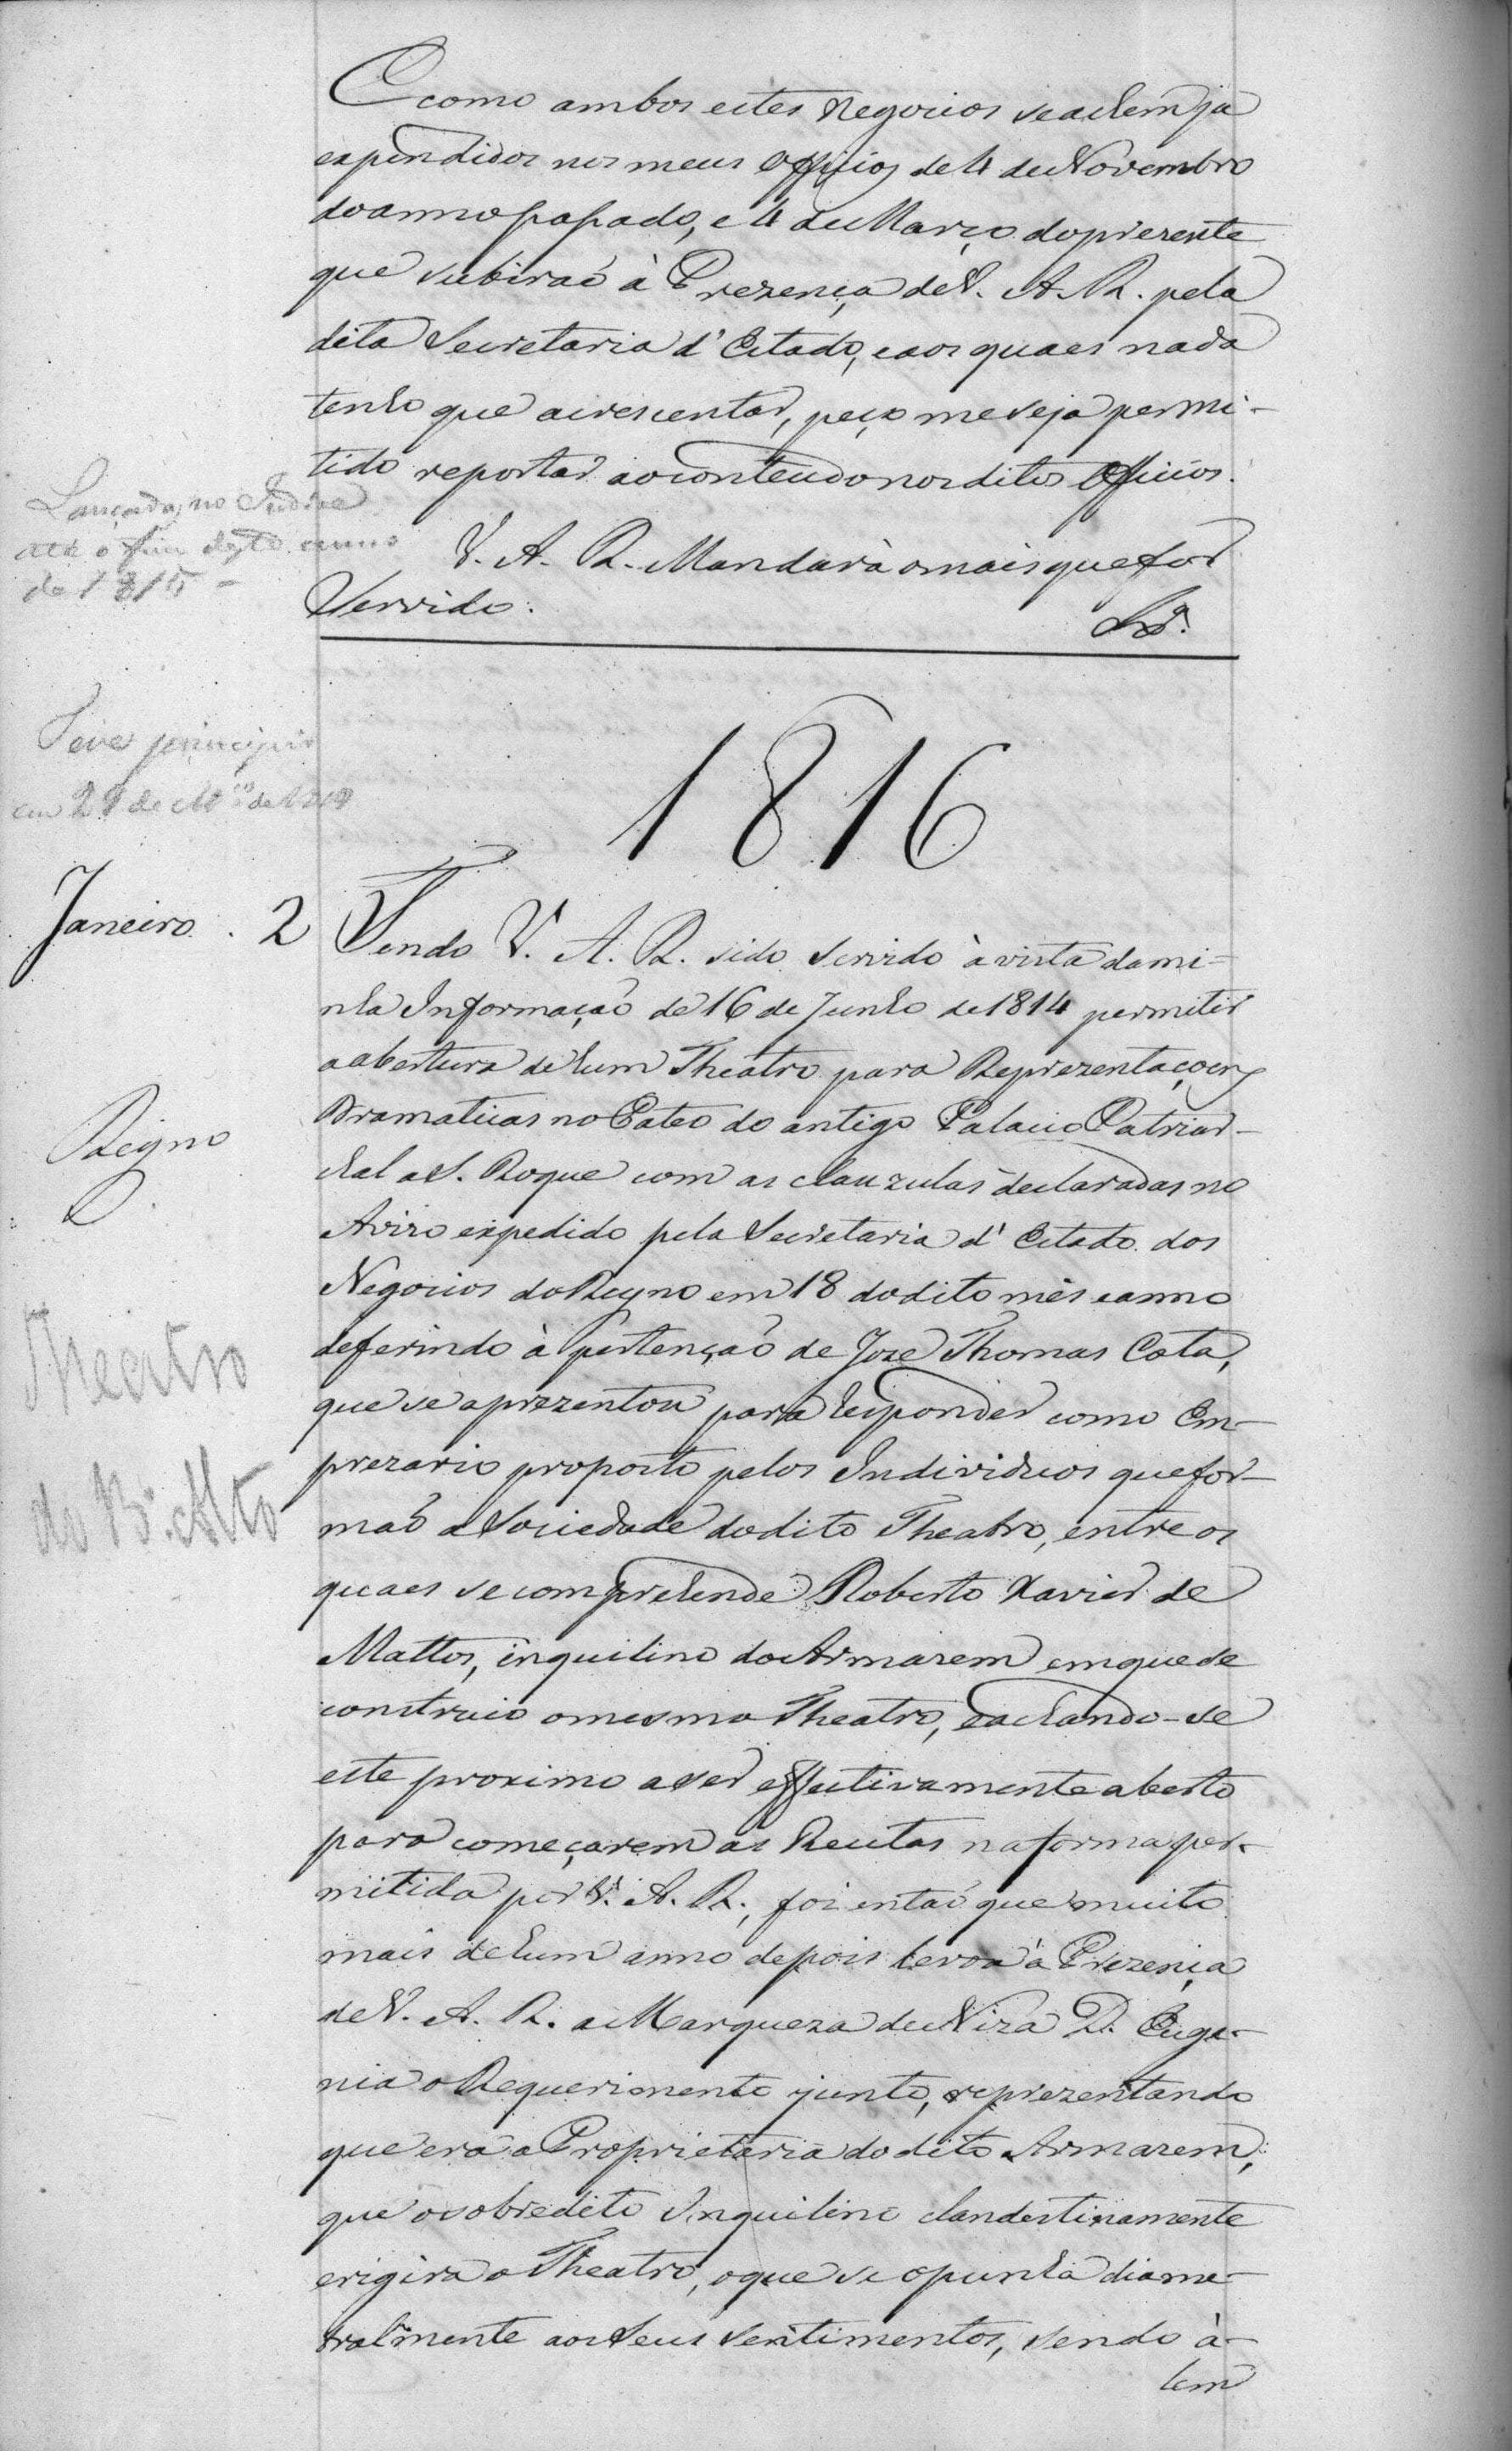 E como ambos estes Negocios se achem já
expendidos nos meus Officios de 4 de Novembro
do anno passado, e 4 de Março do prezente
que subiraõ à Prezença de V. A. R. pela
dita Secretaria d'Estado, e aos quaes nada
tenho que acrescentar, peço me seja permi-
tido reportar ao conteudo nos ditos Officios.
Lançado no Indice
até o fim deste anno
de 1815 -
V. A. R. Mandarà o mais que for
Servido.
Teve principio
em 29 de
1816
Janeiro . 2
Tendo V. A. R. sido servido à vista da mi-
nha Informaçaõ de 16 de Junho de 1814 permitir
a abertura de hum Theatro para Reprezentaçoens
Dramaticas no Pateo do antigo Palacio Patriar-
chal a S. Roque com as clauzulas declaradas no
Reyno
Avizo expedido pela Secretaria d'Estado dos
Negocios do Reyno em 18 do dito mês e anno
deferindo à pertençaõ de Joze Thomas Cota,
Theatro
que se aprezentou para responder como Em-
prezario proposto pelos Individuos que for-
do Bº. Alto
maõ a Sociedade do dito Theatro, entre os
quaes se comprehende Roberto Xavier de
Mattos, inquilino do Armazem em que se
construio o mesmo Theatro, e achando-se
este proximo a ser effectivamente aberto
para começarem as Recitas na forma per-
mitida por V. A. R., foi entaõ que muito
mais de hum anno depois levou à Prezença
de V. A. R. a Marqueza de Niza D. Euge-
nia o Requerimento junto, reprezentando
que era a Proprietaria do dito Armazem,
que o sobredito Inquilino clandestinamente
erigira o Theatro, o que se opunha diame-
tralmente aos seus sentimentos, sendo à-
lem